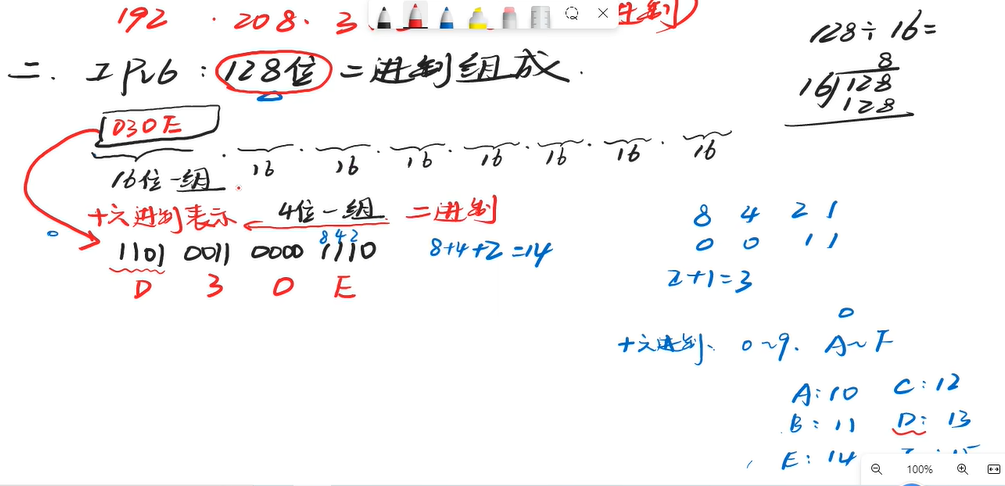 192 . 208. 3 进制)
128÷16=
二. IPv6:128位二进制组成.
8
16 128
128
030E
16位一组 . 16 . 16 . 16 . 16 . 16 . 16 . 16
十六进制表示 4位一组 二进制
8 4 2 1
8 4 2
1101 0011 0000 1110 8+4+2=14
0 0 1 1
D 3 0 E
2+1=3
十六进制. 0~9. A~F
A:10 C:12
B:11 D:13
E:14
100%